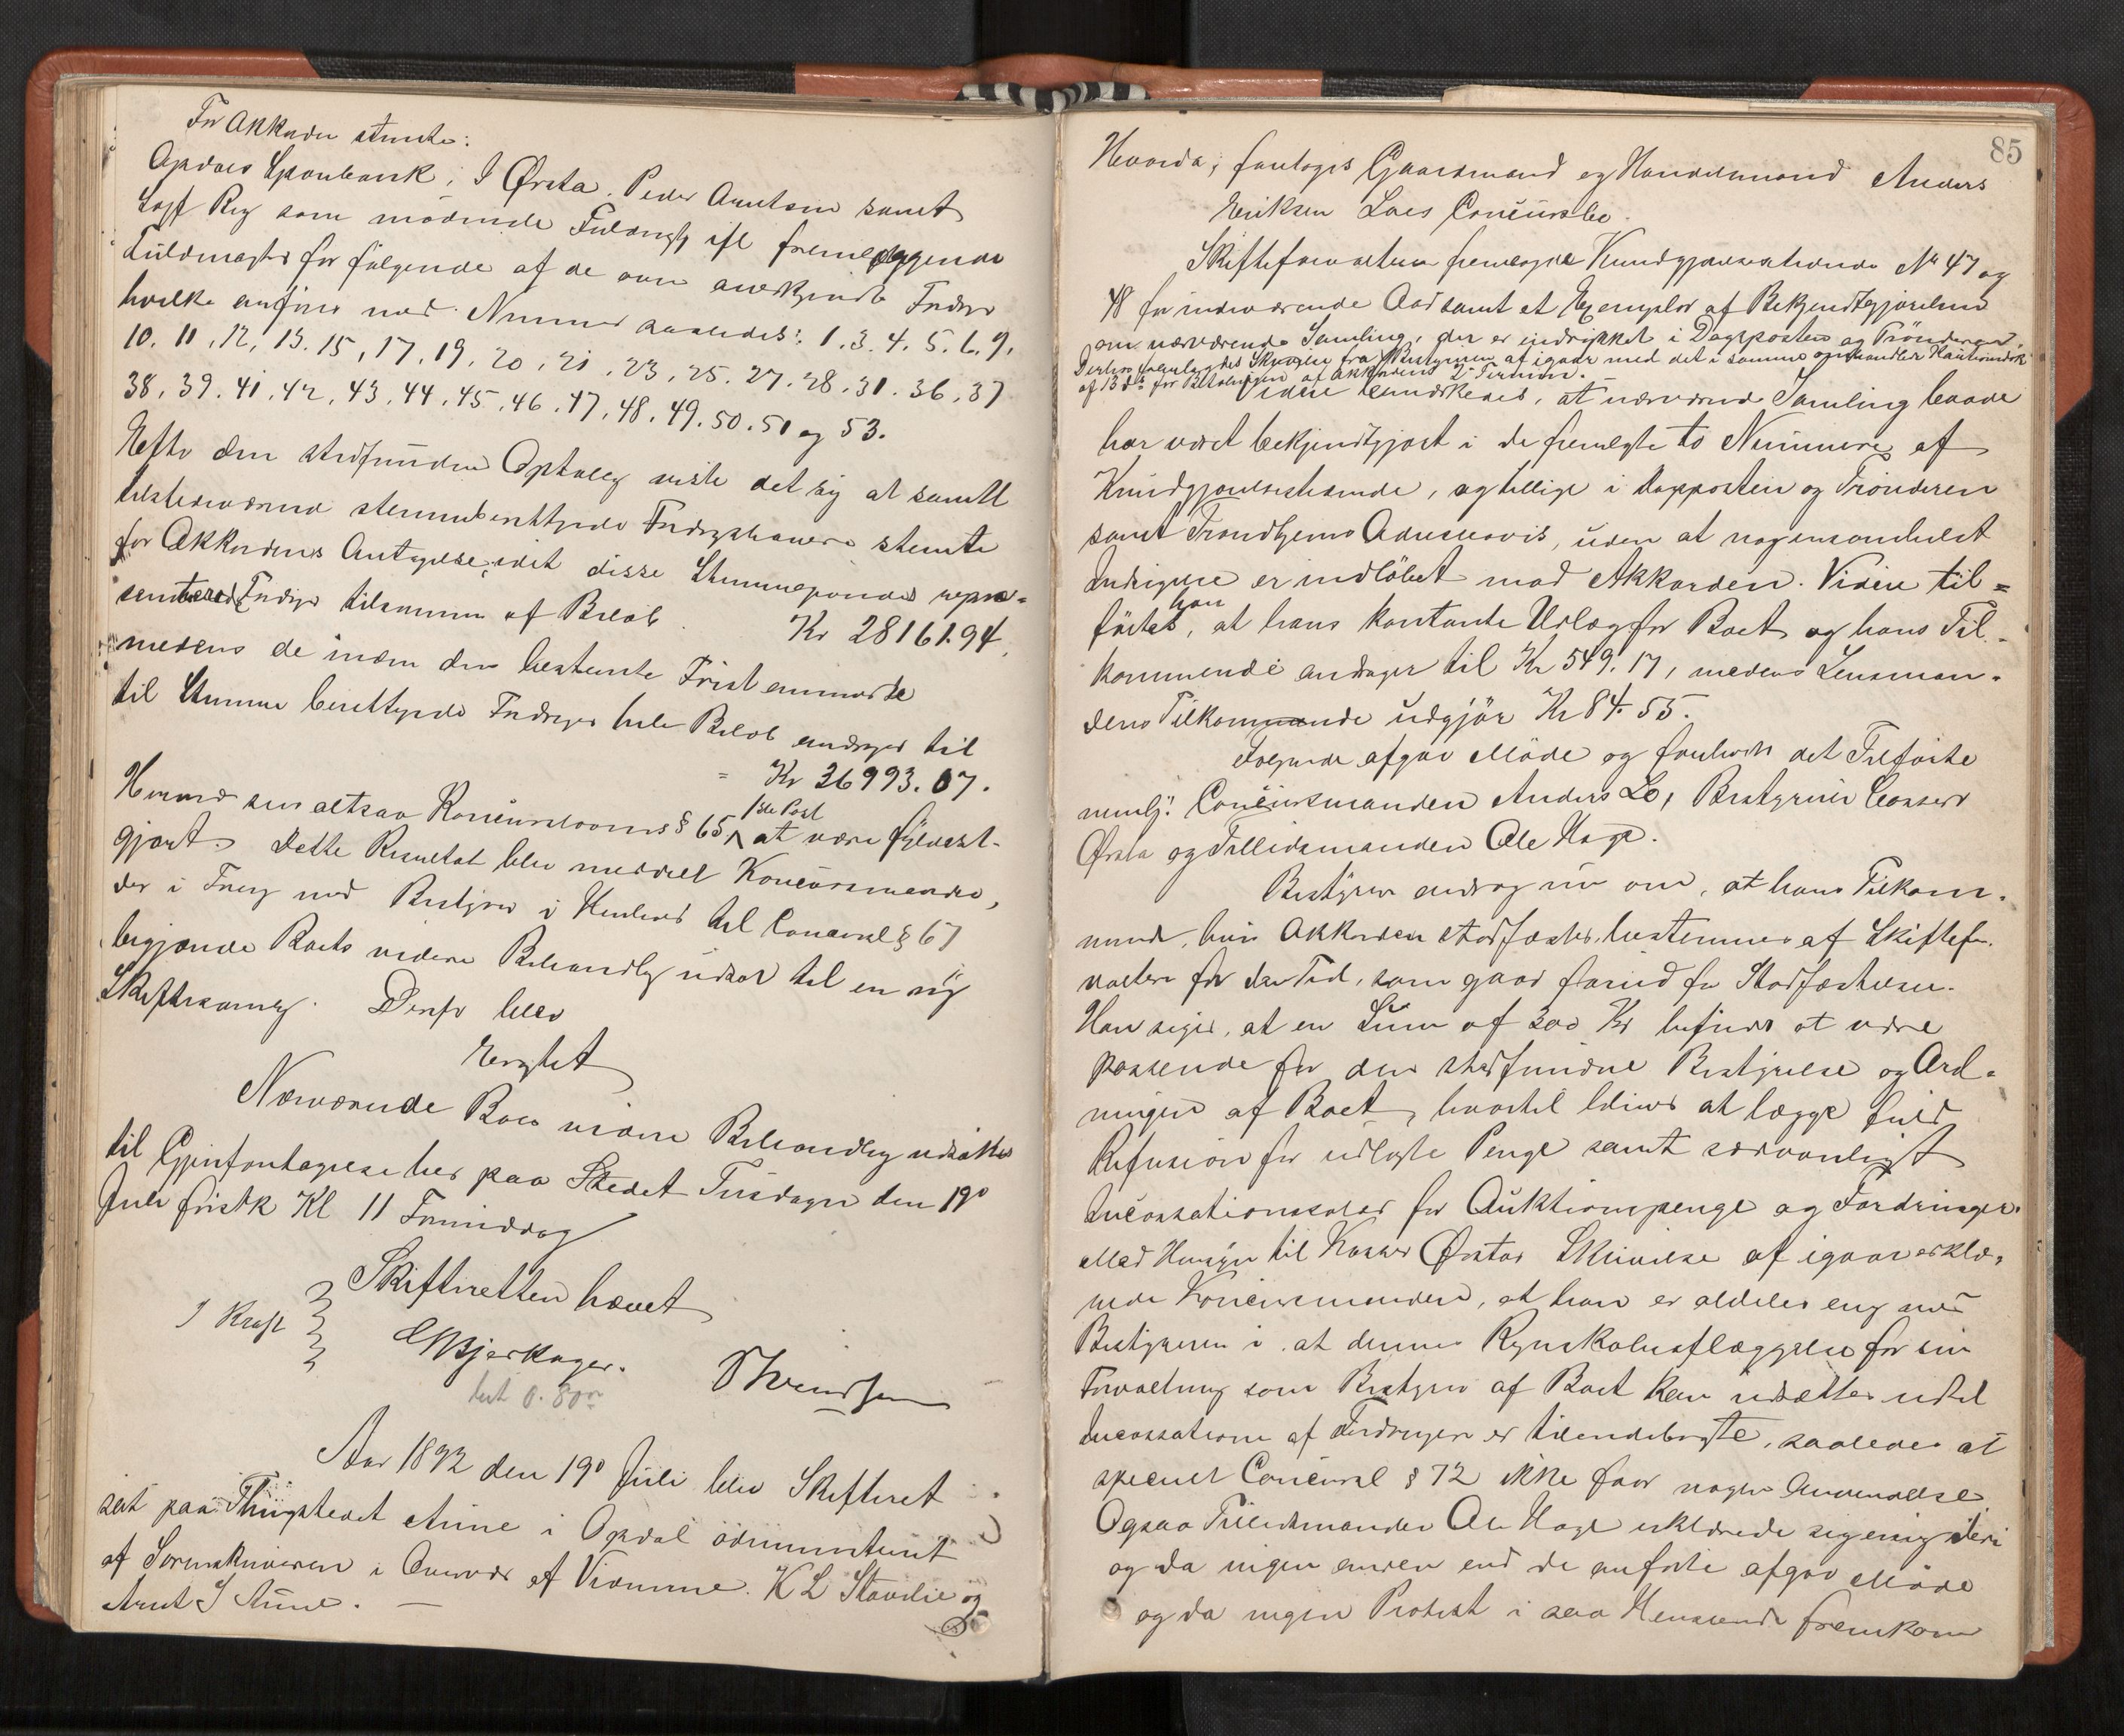 For Akkorden stemte:
Opdals Sparebank, I Ørsta. Peder Arntsen samt
Sagf Rig som mødende Fuldmægt ifl fremlæggende
Fuldmagter for følgende af de oven anerkjendte Fordrer
hvilke anføres med Nummer saaledes: 1. 3. 4. 5. 6. 9.
10. 11, 12, 13. 15, 17. 19. 20, 21. 23, 25. 27. 28. 31. 36. 37
38, 39. 41, 42, 43, 44, 45, 46, 47, 48, 49. 50. 51 og 53.
Efter den stedfundne Optælling viste det sig at samtl
tilstedeværende stemmeberettigede Fordringshavere stemte
for Akkordens Antagelse, idet disse Stemmegivendes repræ-
senterede Fordrgr tilsammen af Beløb Kr 28161.94,
medens de inden den bestemte Frist anmeldte
til Stemme berettigede Fordrgers hele Beløb andrager til
= Kr 36993.07.
Hvormed sees altsaa Koncurslovens § 65 1ste Post at være fyldest-
gjort. Dette Resultat blev meddelt Koncursmanden,
der i Foreng med Bestyrer i Henhold til Concursl § 67
begjærede Boets videre Behandlg udsat til en ny
Skiftesamlg. Derfor blev
Eragtet
Nærværende Boes videre Behandling udsættes
til Gjenforetagelse her paa Stedet Tirsdagen den 19de
Juli førstk Kl 11 Formiddag
Skifteretten hævet
I Kraft
Bjerkager.
bet 0.80
Aar 1892 den 19de Juli blev Skifteret
sat paa Thingstedet Aune i Opdal administreret
af Sorenskriveren i Overvær af Vidnerne. K L Stavlie og
Arnt J Aune. —
85
Hvorda; foretoges Gaardmand og Handelsmand Anders
Eriksen Loes Concursbo.
Skifteforvalteren fremlagde Kundgjørelsestidende No 47 og
48 for indeværende Aar samt et Exemplar af Bekjendtgjørelsen
om nærværende Samling, der er indrykket i Dagsposten og Trønderen.
Derhos fremlagdes Skrivelse fra Bestyreren af igaar med det i samme omhandlede Kautionsdok
af 13 ds for Betalingen af Akkordens 2de Termin.
Videre bemærkedes, at nærværende Samling baade
har været bekjendtgjort i de fremlagte to Nummere af
Kundgjørelsestidende, og tillige i Dagsposten og Trønderen
samt Trondhjems Adresseavis, uden at nogensomhelst
Indsigelse er indløbet mod Akkorden. Videre til-
førtes han, at hans kontante Udlæg for Boet og hans Til-
kommende andrager til Kr 549.17, medens Lensman-
dens Tilkommende udgjør Kr 84.55.
Følgende afgav Møde og forelæstes det Tilførte
nemlig: Concursmanden Anders Lo, Bestyrer Casserer
Ørsta og Tillidsmanden Ole Hage.
Bestyreren androg nu om, at hans Tilkom-
mende, hvis Akkorden stadfæstes, bestemmes af Skiftefor-
valteren for den Tid, som gaar forud for Stadfæstelsen.
Han siger, at en Sum af 300 Kr befindes at være
passende for den stedfundne Bestyrelse og Ord-
ningen af Boet, hvortil bliver at lægge fuld
Refusion for udlagte Penge samt sædvanligt
Incassationssalær for Auktionspenge og Fordringer.
Med Hensyn til Kasser Ørstas Skrivelse af igaar erklæ-
rede Koncursmanden, at han er aldeles enig med
Bestyreren i, at dennes Regnskabsaflæggelse for sin
Forvaltning som Bestyrer af Boet kan udsættes indtil
Incassationen af Fordringer er tilendebragte, saaledes at
specielt Concursl § 72 ikke faar nogen Anvendelse
Ogsaa Tillidsmanden Ole Hage erklærede sig enig deri
og da ingen anden end de anførte afgav Møde
og da ingen Protest i saa Henseende fremkom